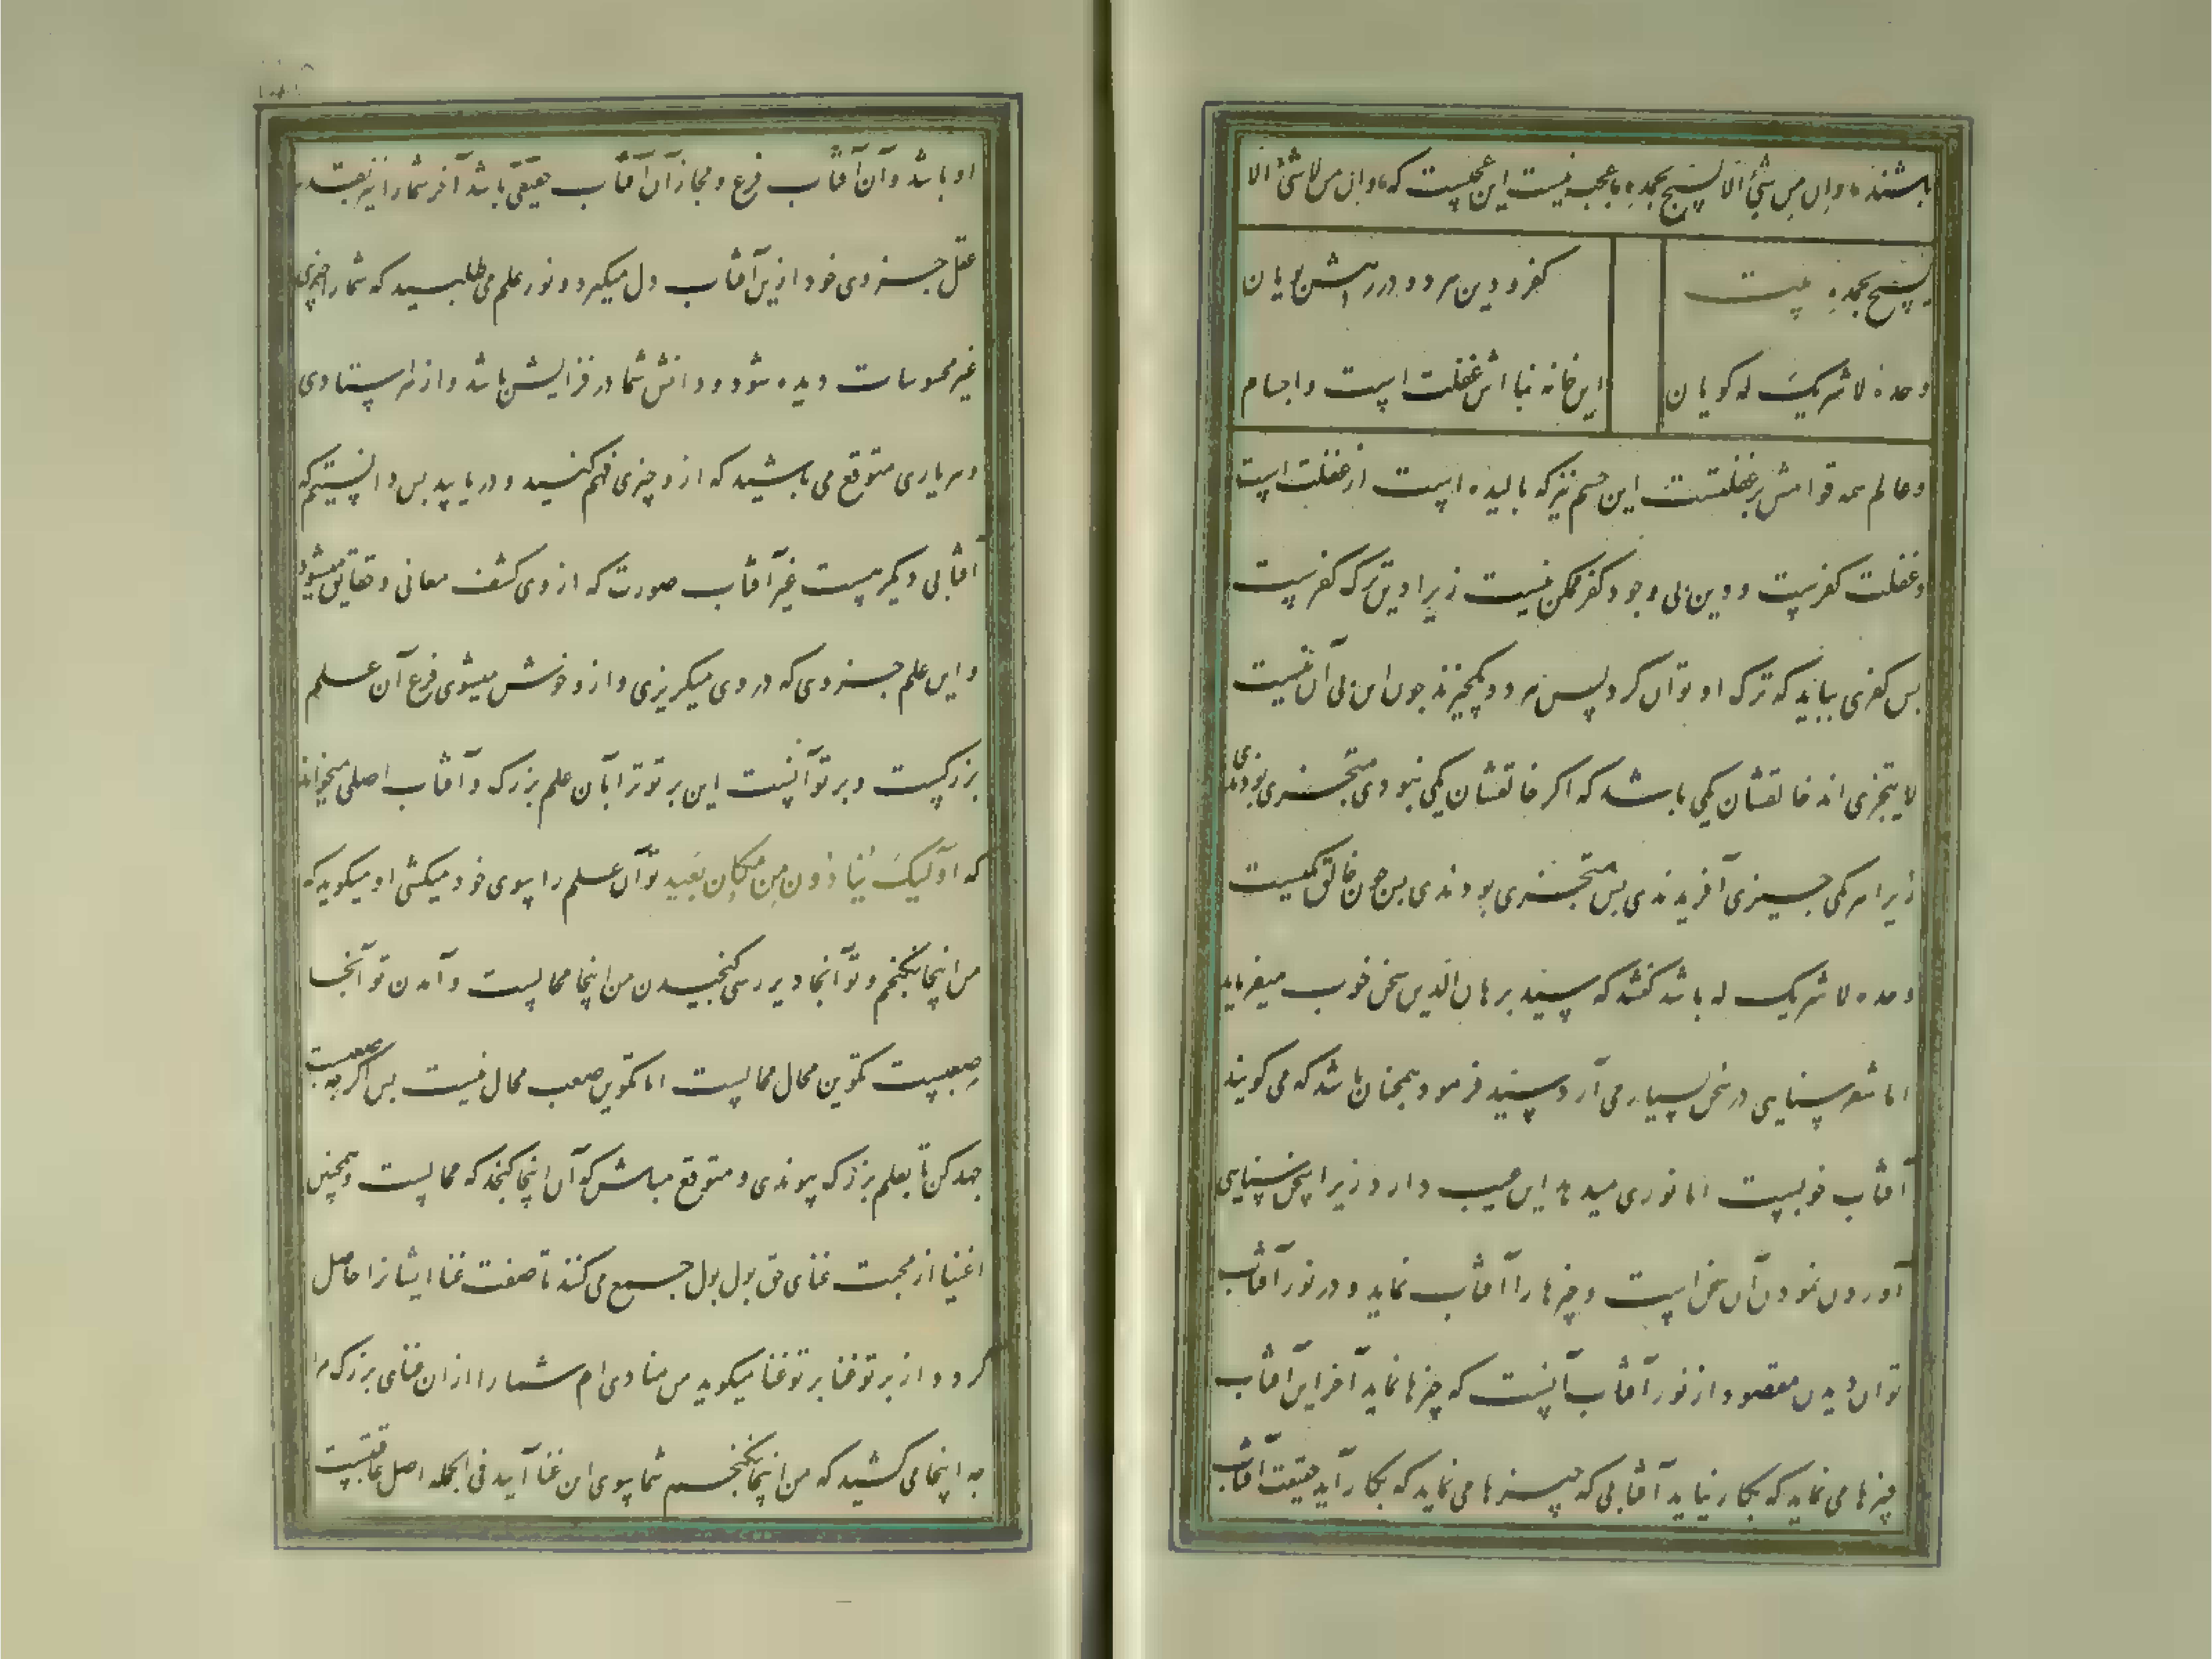 باشند و ان من شیٔ الا یسبح بحمده با عجب نیست این عجبست که و ان من لاشیٔ الا
یسبح بحمده بیت
کفر و دین هر دو در رهش پویان
وحده لا شریک له گویان
این خانه بنااش غفلت است و اجسام
و عالم همه قوامش بر غفلتست این جسم نیز که بالیده است از غفلت است
و غفلت کفرست و دین بی وجود کفر ممکن نیست زیرا دین ترک کفرست
بس کفری بباید که ترک او توان کرد پس هر دو یکچیزند چون این بی آن نیست
لا یتجزی اند خالقشان یکی باشد که اکر خالقشان یکی نبودی متجزی بودندی
زیرا هر یکی چیزی آفریدندی بس متجزی بودندی بس چون خالق یکیست
وحده لا شریک له باشد کفتند که سید برهان الدین سخن خوب میفرماید
اما شعر سنایی در سخن بسیار می آرد سید فرمود همچنان باشد که می کویند
آفتاب خوبست اما نوری میدهد این عیب دارد زیرا سخن سنایی
آوردن نمودن آن سخن است و چیزها را آفتاب نماید و در نور آفتاب
توان دیدن مقصود از نور آفتاب آنست که چیزها نماید آخر این آفتاب
چیزها می نماید که بکار نیاید آفتابی که چیزها می نماید که بکار آید حقیقت آفتاب
او باشد و آن آفتاب فرع و مجاز آن آفتاب حقیقی باشد آخر شما را نیز بقدر
عقل جزوی خود ازین آفتاب دل میگیرد و نور علم می طلبید که شما را چیزی
غیر محسوسات دیده شود و دانش شما در فزایش باشد و از هر استادی
و هر یاری متوقع می باشید که ازو چیزی فهم کنید و دریابید بس دانستیم که
آفتابی دیگر هست غیر آفتاب صورت که از وی کشف معانی و حقایق میشود
و این علم جزوی که در وی میگریزی و ازو خوش میشوی فرع آن علم
بزرگست و پرتو آنست این پرتو ترا بآن علم بزرگ و آفتاب اصلی میخواند
که اولیک ینادون من مکان بعید تو آن علم را بسوی خود میکشی او میگوید که
من اینجا نگنجم و تو آنجا دیر رسی گنجیدن من اینجا محالست و آمدن تو آنجا
صعبست تکوین محال محالست اما تکوین صعب محال نیست بس اگر چه صعبست
جهد کن تا بعلم بزرگ پیوندی و متوقع مباش که آن اینجا گنجد که محالست و همچنین
اغنیا از محبت غنای حق پول پول جمع می کنند تا صفت غنا ایشانرا حاصل
گردد از پرتو غنا پرتو غنا میگوید من منادی ام شما را از ان غنای بزرگ مرا
چه اینجا می کشید که من اینجا نگنجم شما بسوی این غنا آیید فی الجمله اصل عاقبتست